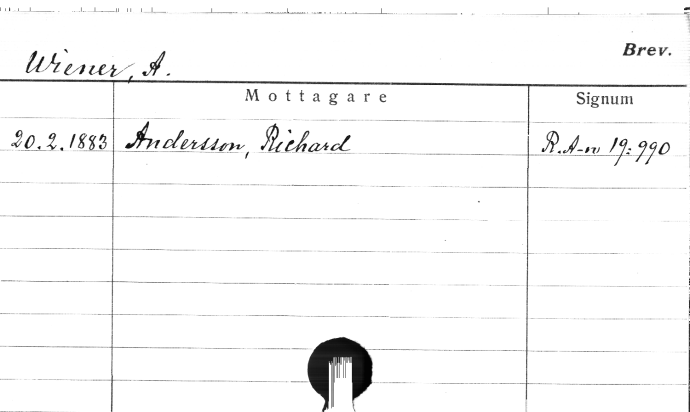 Brev.
Wiener, A.
Mottagare Signum
20.2.1883 Andersson, Richard R.A-n 19:990